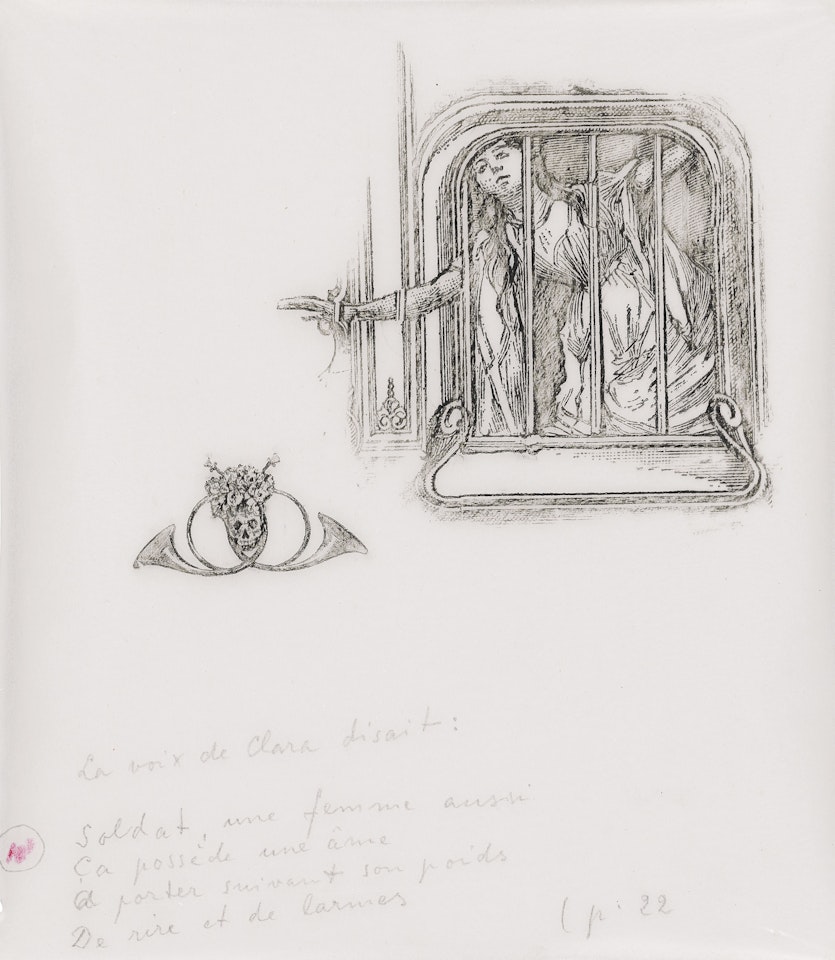 La voix de Clara disait :
Soldat, une femme aussi
Ça possède une âme
A porter suivant son poids
De rire et de larmes
( p. 22